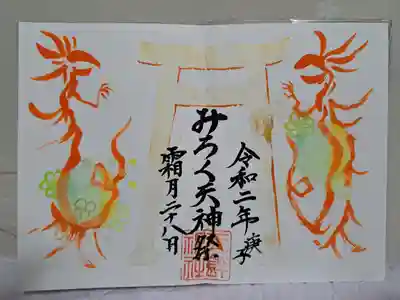 令和二年庚子
みろく天神祭
霜月二十八日